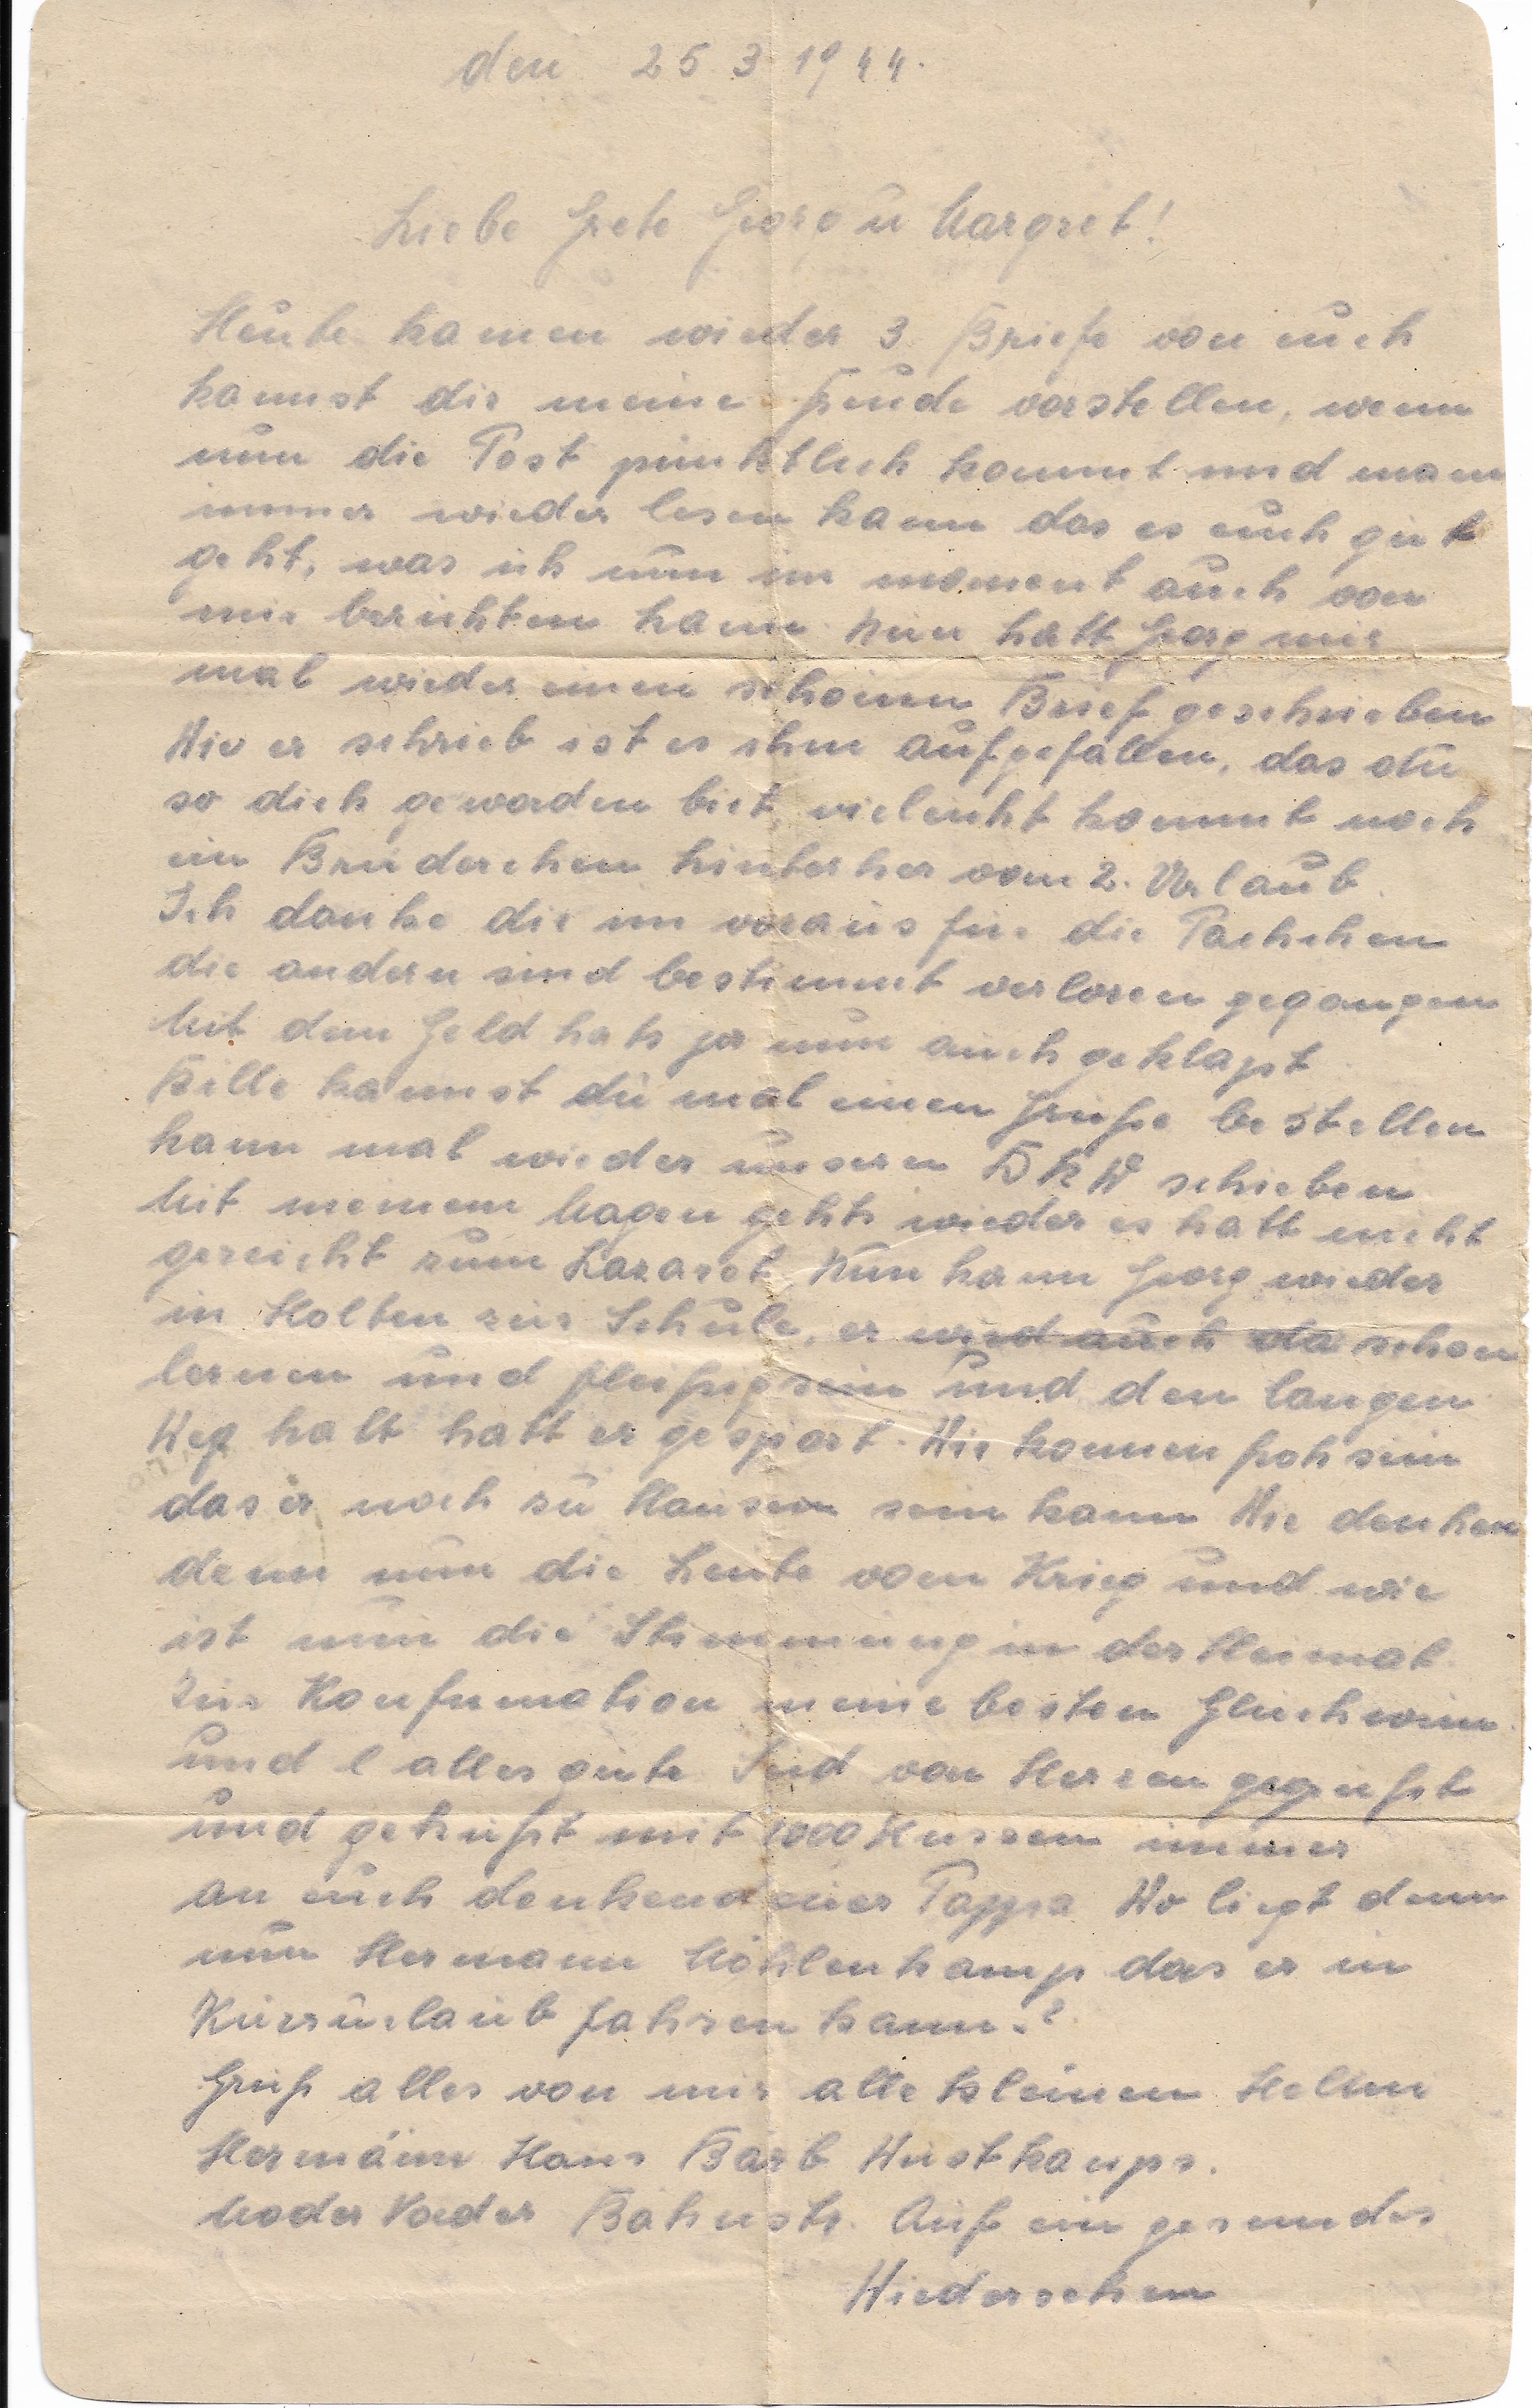 den 25 3 1944.
Liebe Grete Georg u Margret!
Heute kamen wieder 3 Briefe von euch
kannst dir meine Freude vorstellen, wenn
nun die Post pünktlich kommt und man
immer wieder lesen kann das es euch gut
geht, was ich nun im moment auch von
mir berichten kann. Nun hatt Georg mir
mal wieder einen schönen Brief geschrieben
Wie er schrieb ist es ihm aufgefallen, das du
so dick geworden bist vieleicht kommt noch
ein Brüderchen hinterher vom 2. Urlaub.
Ich danke dir im voraus für die Päckchen
die andern sind bestimmt verloren gegangen
Mit dem Geld hats ja nun auch geklapt
kannst du mal einen Grüße bestellen
kann mal wieder unseren DKW schieben
Mit meinem Magen gehts wieder es hatt nicht
gereicht zum Lazaret. Nun kann Georg wieder
in Holten zur Schule, er wird auch da schon
lernen und fleißig sein und den langen
Weg halt hatt er gespart. Wir konnen froh sein
das er noch zu Hause sein kann Wie denken
denn nun die Leute vom Krieg und wie
ist nun die Stimmung in der Heimat.
Zur Konfirmation meine besten Glückwün
und l alles gute Seid von Herzen gegrüßt
und geküßt mit 1000 Küssen immer
an euch denkend euer Pappa Wo liegt denn
nun Hermann Möhlenkamp das er in
Kurzurlaub fahren kann.?
Grüß alles von mir alle kleinen Helmi
Hermann Hans Barb
Moder Vader Bahnstr. Auf ein gesundes
Wiedersehen